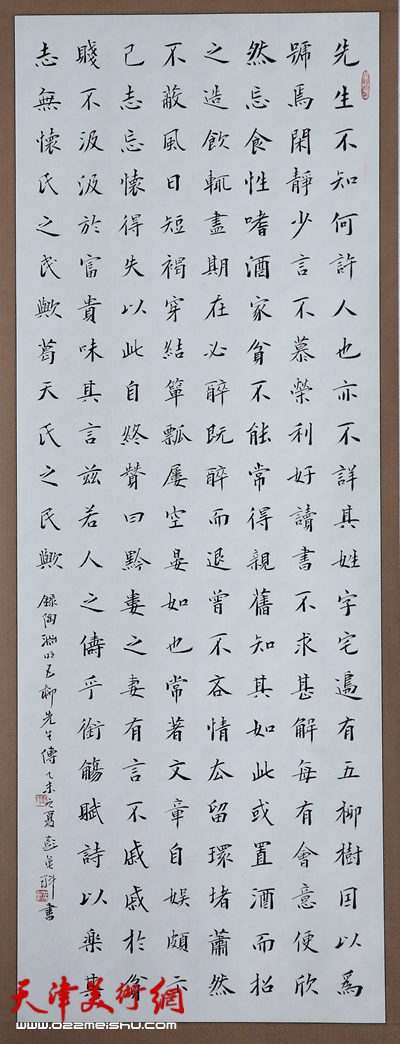 先生不知何許人也亦不詳其姓字宅邊有五柳樹因以為
號焉閑靜少言不慕榮利好讀書不求甚解每有會意便欣
然忘食性嗜酒家貧不能常得親舊知其如此或置酒而招
之造飲輒盡期在必醉既醉而退曾不吝情去留環堵蕭然
不蔽風日短褐穿結簞瓢屢空晏如也常著文章自娛頗示
己志忘懷得失以此自終贊曰黔婁之妻有言不戚戚於貧
賤不汲汲於富貴味其言茲若人之儔乎銜觴賦詩以樂其
志無懷氏之民歟葛天氏之民歟
錄陶淵明五柳先生傳乙未之夏 書
天津美術網
www.022meishu.com